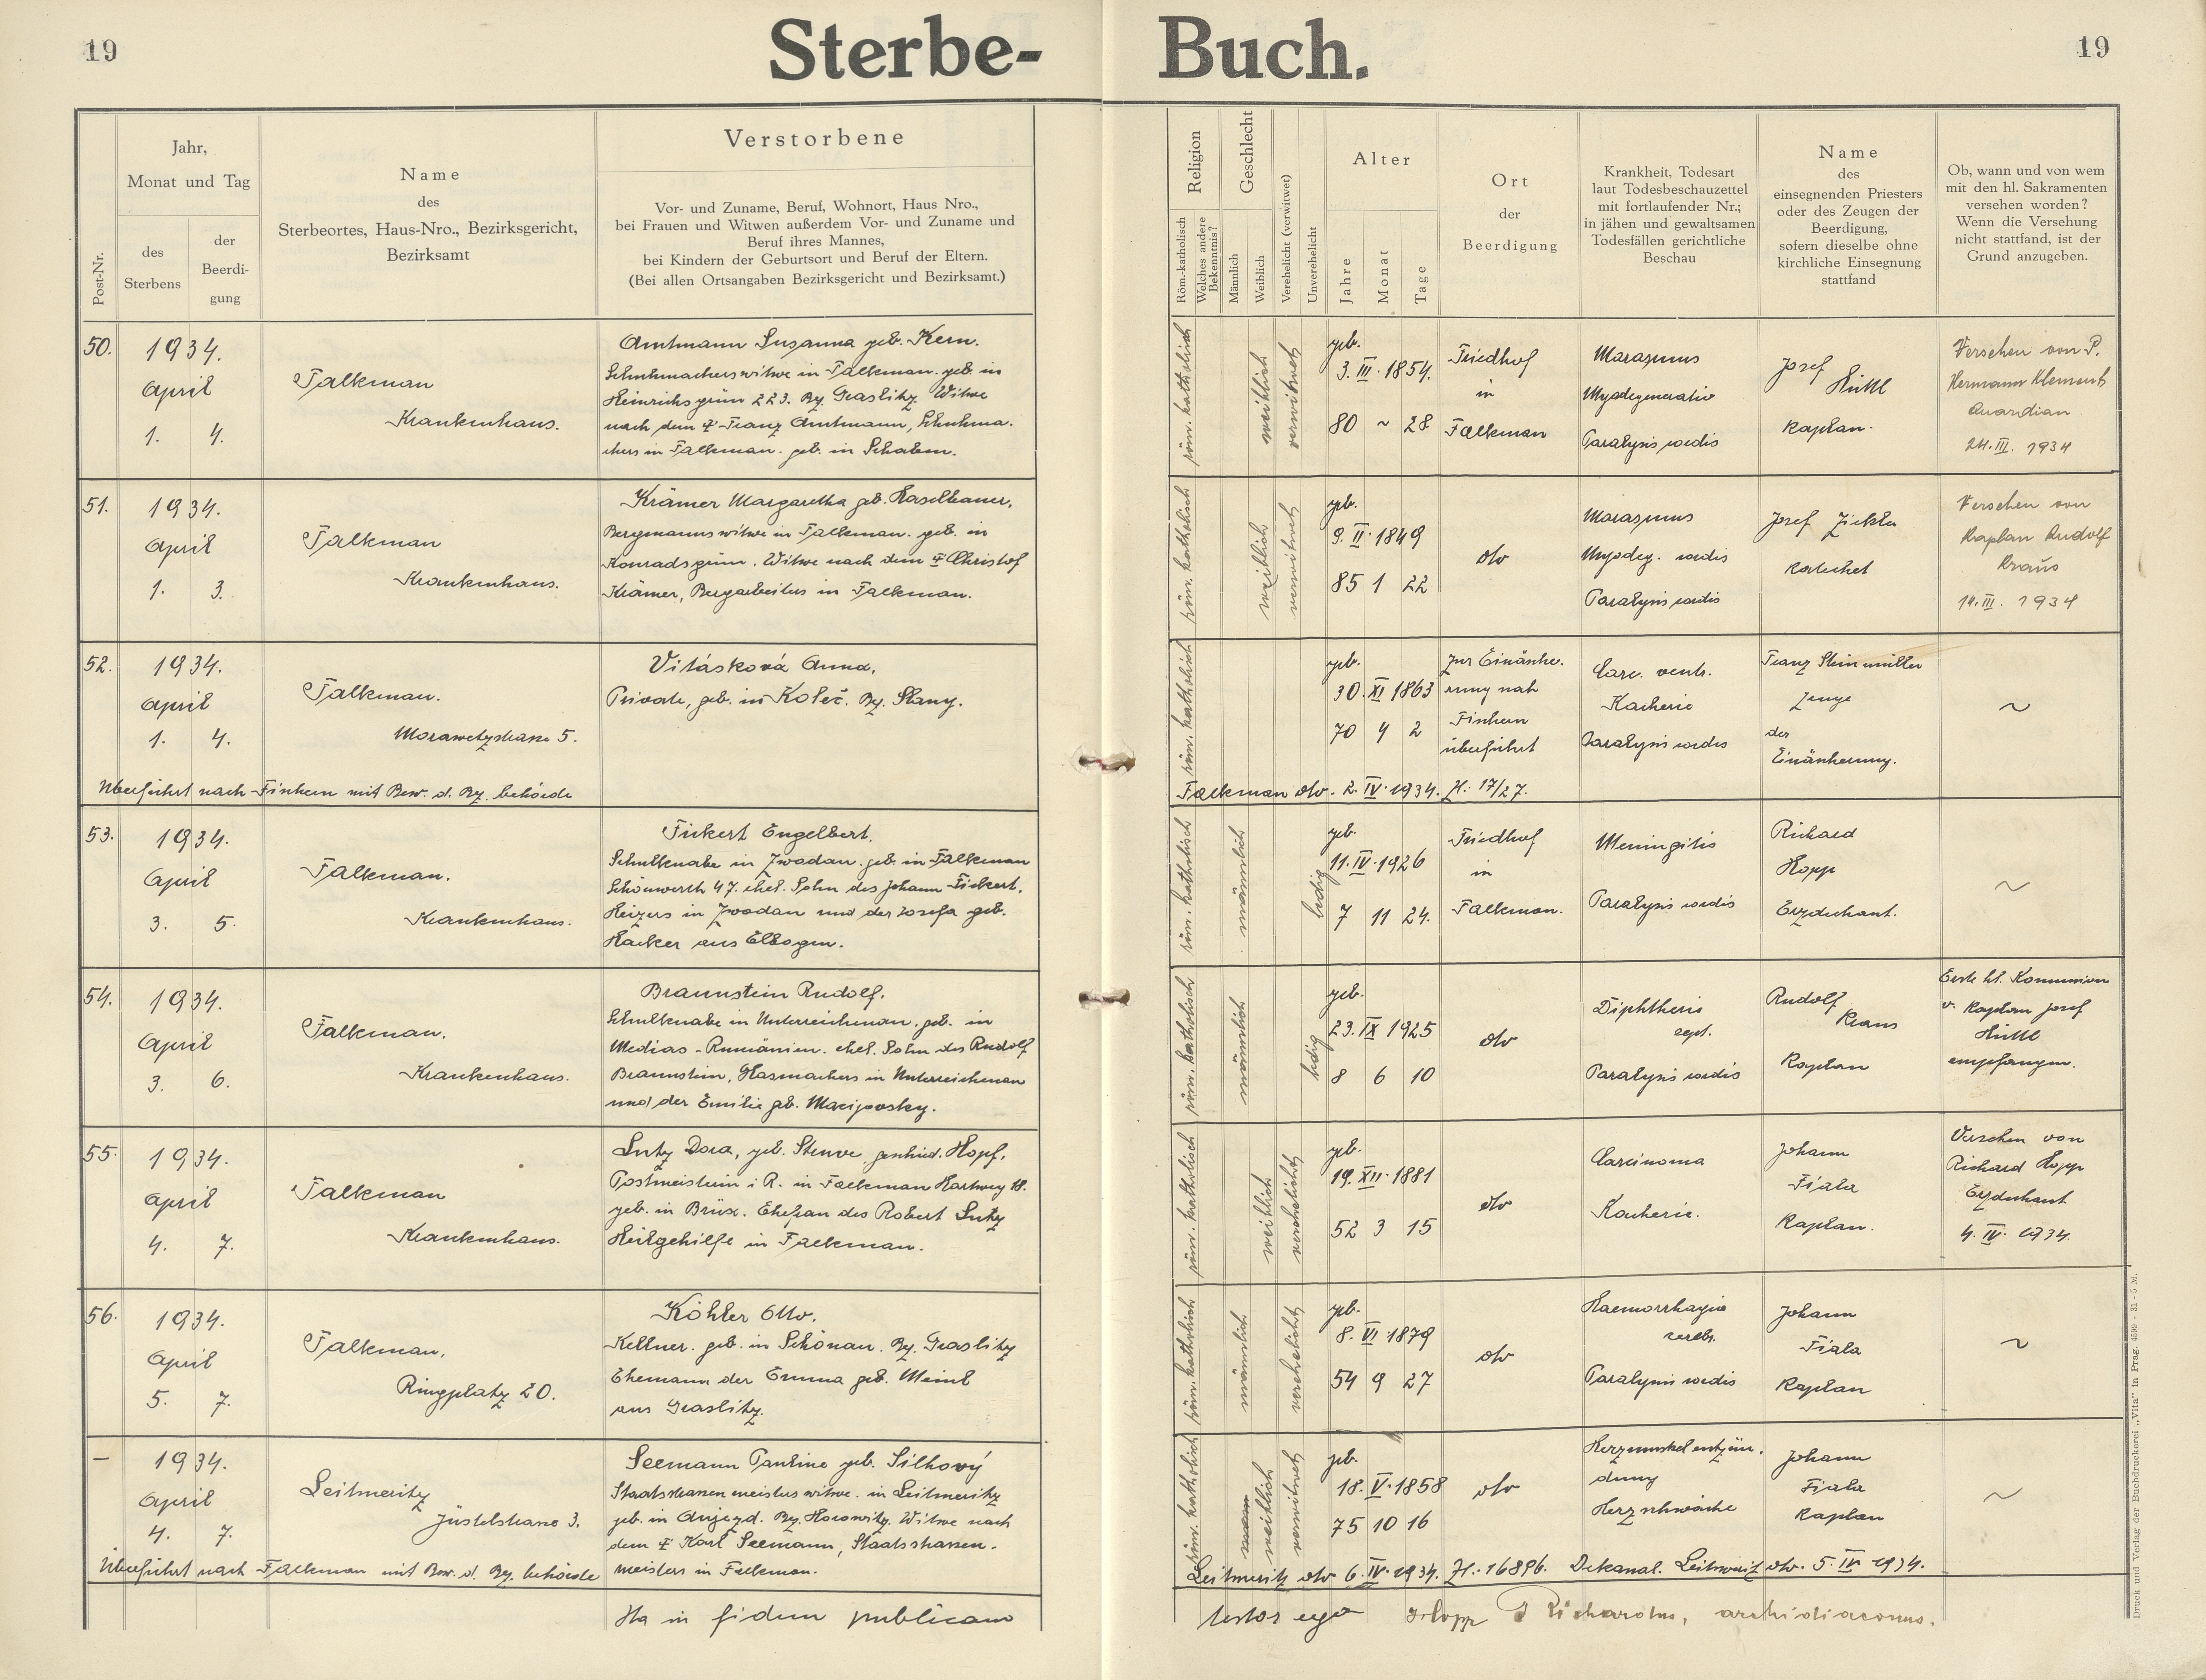 19
Sterbe-
Buch.
19
Post-Nr.
Jahr,
Monat und Tag
des
Sterbens
der
Beerdi-
gung
Name
des
Sterbeortes, Haus-Nro., Bezirksgericht,
Bezirksamt
Verstorbene
Vor- und Zuname, Beruf, Wohnort, Haus Nro.,
bei Frauen und Witwen außerdem Vor- und Zuname und
Beruf ihres Mannes,
bei Kindern der Geburtsort und Beruf der Eltern.
(Bei allen Ortsangaben Bezirksgericht und Bezirksamt.)
Religion
Röm.-katholisch
Welches andere
Bekenntnis?
Geschlecht
Männlich
Weiblich
Verehelicht (verwitwet)
Unverehelicht
Alter
Jahre
Monat
Tage
Ort
der
Beerdigung
Krankheit, Todesart
laut Todesbeschauzettel
mit fortlaufender Nr.;
in jähen und gewaltsamen
Todesfällen gerichtliche
Beschau
Name
des
einsegnenden Priesters
oder des Zeugen der
Beerdigung,
sofern dieselbe ohne
kirchliche Einsegnung
stattfand
Ob, wann und von wem
mit den hl. Sakramenten
versehen worden?
Wenn die Versehung
nicht stattfand, ist der
Grund anzugeben.
50.
1934.
April
1. 4.
Falkenau
Krankenhaus.
Amtmann Susanna geb. Kern.
Schuhmacherswitwe in Falkenau. geb. in
Heinrichsgrün 223. Bz. Graslitz Witwe
nach dem † Franz Amtmann, Schuhma-
chers in Falkenau. geb. in Schaben.
röm. katholisch
weiblich
verwitwet
geb.
3. III. 1854.
80 ~ 28
Friedhof
in
Falkenau
Marasmus
Myodegeneratio
Paralysis cordis
Josef
Hüttl
Kaplan.
Versehen von P.
Hermann Klement
Quardian
24. III. 1934
51.
1934.
April
1. 3.
Falkenau
Krankenhaus.
Krämer Margaretha geb. Haselbauer.
Bergmannswitwe in Falkenau. geb. in
Konradsgrün. Witwe nach dem † Christof
Krämer, Bergarbeiters in Falkenau.
röm. katholisch
weiblich
verwitwet
geb.
9. II. 1849
85 1 22
dto
Marasmus
Myodeg. cordis
Paralysis cordis
Josef Zickler
Katechet
Versehen von
Kaplan Rudolf
Kraus
14. III. 1934
52.
1934.
April
1. 4.
Falkenau.
Morawetzstrasse 5.
Vitásková Anna,
Private, geb. in Koleč. Bz. Slany.
Überführt nach Fischern mit Bew. d. Bz. behörde
röm. katholisch
geb.
30. XI 1863
70 4 2
Zur Einäsche-
rung nach
Fischern
überführt
Carc. ventr.
Kachexie
Paralysis cordis
Franz Steinmüller
Zeuge
der
Einäscherung.
~
Falkenau dto. 2. IV. 1934. Zl.: 17/27.
53.
1934.
April
3. 5.
Falkenau.
Krankenhaus.
Fickert Engelbert.
Schulknabe in Zwodau. geb. in Falkenau
Schönwerth 47. ehel. Sohn des Johann Fickert,
Heizers in Zwodau und der Josefa geb.
Hacker aus Elbogen.
röm. katholisch
männlich
ledig
geb.
11. IV. 1926
7 11 24.
Friedhof
in
Falkenau.
Meningitis
Paralysis cordis
Richard
Hopp
Erzdechant.
~
54.
1934.
April
3. 6.
Falkenau.
Krankenhaus.
Braunstein Rudolf.
Schulknabe in Unterreichenau. geb. in
Medias - Rumänien. ehel. Sohn des Rudolf
Braunstein, Glasmachers in Unterreichenau
und der Emilie geb.
röm. katholisch
männlich
ledig
geb.
23. IX 1925
8 6 10
dto
Diphtherie
sept.
Paralysis cordis
Rudolf
Kraus
Kaplan
Erste hl. Kommunion
v. Kaplan Josef
Hüttl
empfangen.
55.
1934.
April
4. 7.
Falkenau
Krankenhaus.
Lutz Dora, geb. Sterve geschied. Hopf,
Postmeisterin i R. in Falkenau Hartweg 18.
geb. in Brüx. Ehefrau des Robert Lutz
Heilgehilfe in Falkenau.
röm. katholisch
weiblich
verehelicht
geb.
19. XII. 1881
52 3 15
dto
Carcinoma
Kachexie.
Johann
Fiala
Kaplan.
Versehen von
Richard Hopp
Erzdechant
4. IV. 1934.
56.
1934.
April
5. 7.
Falkenau,
Ringplatz 20.
Köhler Otto.
Kellner. geb. in Schönau. Bz. Graslitz
Ehemann der Emma geb. Meinl
aus Graslitz.
röm. katholisch
männlich
verehelicht
geb.
8. VI. 1879
54 9 27
dto
Haemorrhagia
cerebr.
Paralysis cordis
Johann
Fiala
Kaplan
~
–
1934.
April
4. 7.
Leitmeritz
Jüstelstrasse 3.
Seemann Pauline geb. Silhový
Staatsstrassenmeisterswitwe. in Leitmeritz
geb. in Aujezd. Bz. Horowitz. Witwe nach
dem † Karl Seemann, Staatsstrassen-
meisters in Falkenau.
Überführt nach Falkenau mit Bew. d. Bz. behörde
röm. katholisch
weiblich
verwitwet
geb.
18. V. 1858
75 10 16
dto
Herzmuskelentzün-
dung
Herzschwäche
Johann
Fiala
Kaplan
~
Leitmeritz dto 6. IV. 1934. Zl.: 16896. Dekanal. Leitmeritz dto. 5. IV 1934.
Ita in fidem publicam
testor ego Hopp Richardus, archidiaconus.
Druck und Verlag der Buchdruckerei „Vita" in Prag. 4599 - 31 - 5 M.